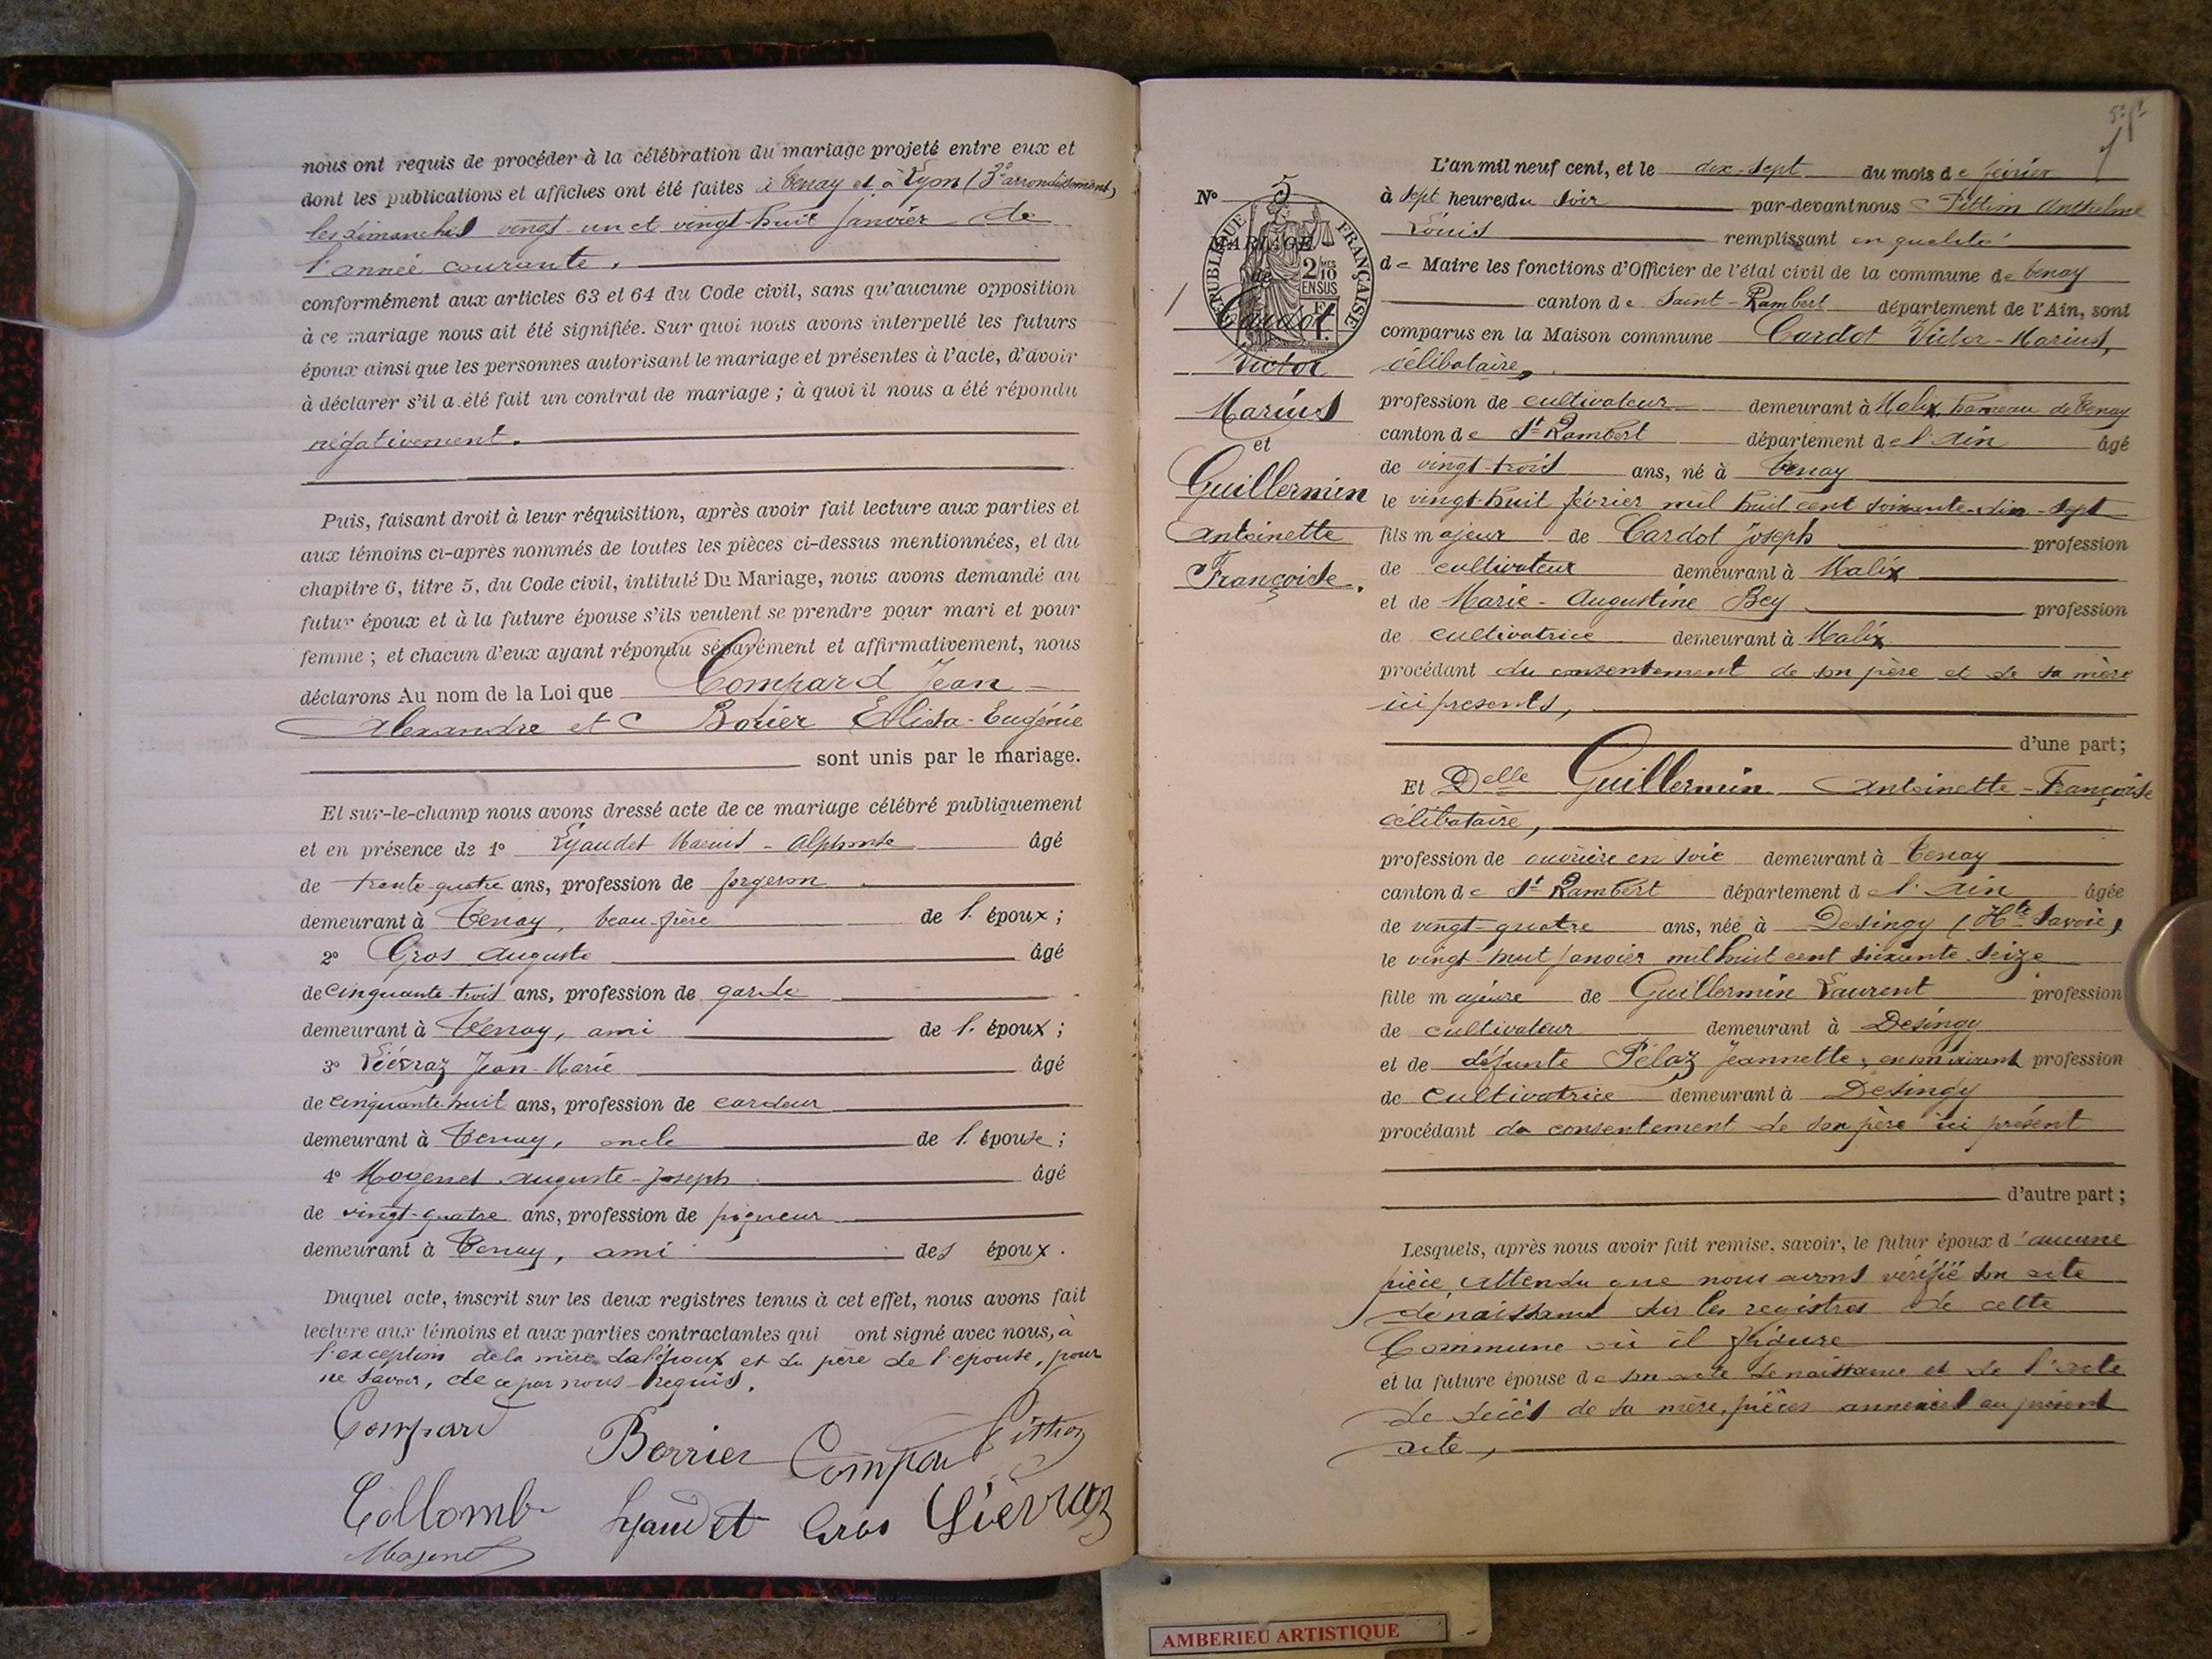 nous ont requis de procéder à la célébration du mariage projeté entre eux et
dont les publications et affiches ont été faites à Tenay et à Lyon (3e arrondissement)
les dimanches vingt-un et vingt-huit janvier de
l'année courante.
conformément aux articles 63 et 64 du Code civil, sans qu'aucune opposition
à ce mariage nous ait été signifiée. Sur quoi nous avons interpellé les futurs
époux ainsi que les personnes autorisant le mariage et présentes à l'acte, d'avoir
à déclarer s'il a été fait un contrat de mariage ; à quoi il nous a été répondu
négativement.
Puis, faisant droit à leur réquisition, après avoir fait lecture aux parties et
aux témoins ci-après nommés de toutes les pièces ci-dessus mentionnées, et du
chapitre 6, titre 5, du Code civil, intitulé Du Mariage, nous avons demandé au
futur époux et à la future épouse s'ils veulent se prendre pour mari et pour
femme ; et chacun d'eux ayant répondu séparément et affirmativement, nous
déclarons Au nom de la Loi que Compard Jean-
Alexandre et Elisa-Eugénie
sont unis par le mariage.
Et sur-le-champ nous avons dressé acte de ce mariage célébré publiquement
et en présence de 1° Lyaudet Marius-Alphonse âgé
de trente-quatre ans, profession de forgeron
demeurant à Tenay, beau-frère de l'époux ;
2° Gros Auguste âgé
de cinquante-trois ans, profession de garde
demeurant à Tenay, ami de l'époux ;
3° Lièvraz Jean-Marie âgé
de cinquante-huit ans, profession de cardeur
demeurant à Tenay, oncle de l'épouse ;
4° Mogenet Auguste-Joseph âgé
de vingt-quatre ans, profession de pigneur
demeurant à Tenay, ami des époux.
Duquel acte, inscrit sur les deux registres tenus à cet effet, nous avons fait
lecture aux témoins et aux parties contractantes qui ont signé avec nous, à
l'exception de la mère de l'époux et du père de l'épouse, pour
ne savoir, de ce par nous requis.
Compard Borrier Pittion
Collomb Lyaudet Gros Lièvraz
Mogenet
L'an mil neuf cent, et le dix-sept du mois de février
à sept heures du soir par-devant nous Pittion Anthelme
Louis remplissant en qualité
de Maire les fonctions d'Officier de l'état civil de la commune de Tenay
canton de Saint-Rambert département de l'Ain, sont
comparus en la Maison commune Cardot Victor-Marius,
célibataire,
profession de cultivateur demeurant à Malix, hameau de Tenay
canton de St Rambert département de l'Ain âgé
de vingt-trois ans, né à Tenay
le vingt-huit février mil huit cent soixante-dix-sept
fils majeur de Cardot Joseph profession
de cultivateur demeurant à Malix
et de Marie-Augustine Bey profession
de cultivatrice demeurant à Malix
procédant du consentement de son père et de sa mère
ici présents,
d'une part ;
Et Delle Guillermin Antoinette-Françoise
célibataire,
profession de ouvrière en soie demeurant à Tenay
canton de St Rambert département de l'Ain âgée
de vingt-quatre ans, née à Desingy (Hte Savoie)
le vingt-huit janvier mil huit cent soixante-seize
fille majeure de Guillermin Laurent profession
de cultivateur demeurant à Desingy
et de défunte Pélaz Jeannette, en son vivant profession
de cultivatrice demeurant à Desingy
procédant du consentement de son père ici présent
d'autre part ;
Lesquels, après nous avoir fait remise, savoir, le futur époux d'aucune
pièce, attendu que nous avons vérifié son acte
de naissance sur les registres de cette
Commune où il figure
et la future épouse de son acte de naissance et de l'acte
de décès de sa mère, pièces annexées au présent
acte,
N° 5
MARIAGE
de
Cardot
Victor
Marius
et
Guillermin
Antoinette
Françoise.
RÉPUBLIQUE FRANÇAISE
2/10 MES
EN SUS
AMBERIEU ARTISTIQUE